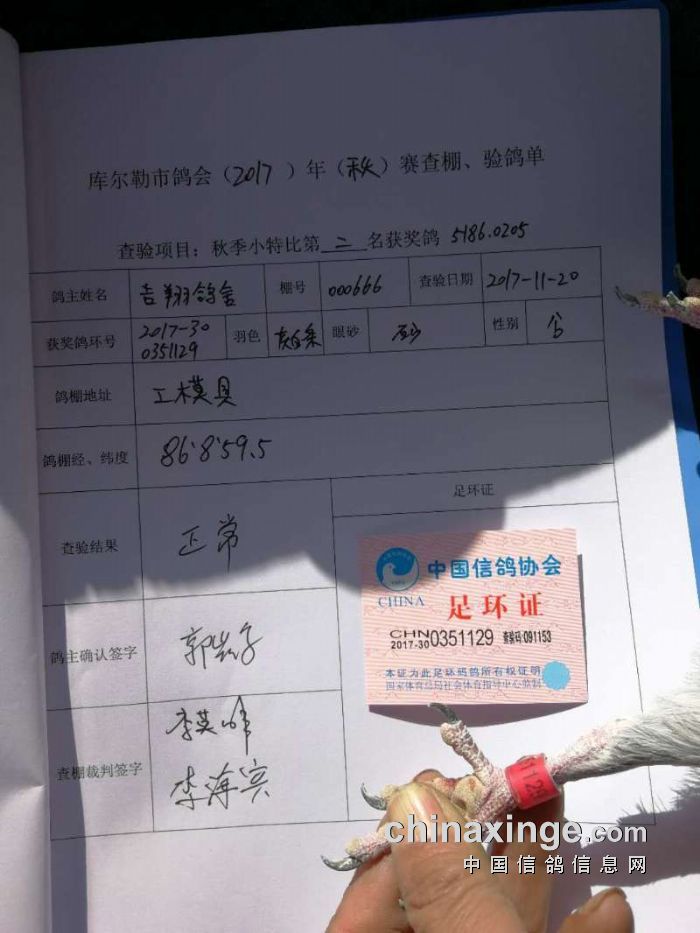 库尔勒市鸽会（2017）年（秋）赛查棚、验鸽单
查验项目：秋季小特比第二名获奖鸽 5186.0205
鸽主姓名 吉翔鸽舍 棚号 000666 查验日期 2017-11-20
获奖鸽环号 2017-30 0351129 羽色 灰白条 眼砂 砂 性别 公
鸽棚地址 工模具
鸽棚经、纬度 86°8'59.5
查验结果 正常 足环证
中国信鸽协会
CHINA 足环证
CHN 2017-30 0351129 查验码:091153
本证为此足环码鸽所有权证明
国家体育总局社会体育指导中心监制
鸽主确认签字 郭
查棚裁判签字 李英峰
李海宾
1129
chinaxinge.com
中国信鸽信息网